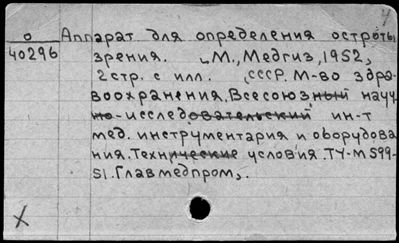 о Аппарат для определения остроты
40296 зрения. М., Медгиз, 1952,
2 стр. с илл. (СССР. М-во здра-
воохранения, Всесоюзный науч
но-исследовательский ин-т
мед. инструментария и оборудова
ния. Технические условия. ТУ-М 599-
51. Главмедпром).
X